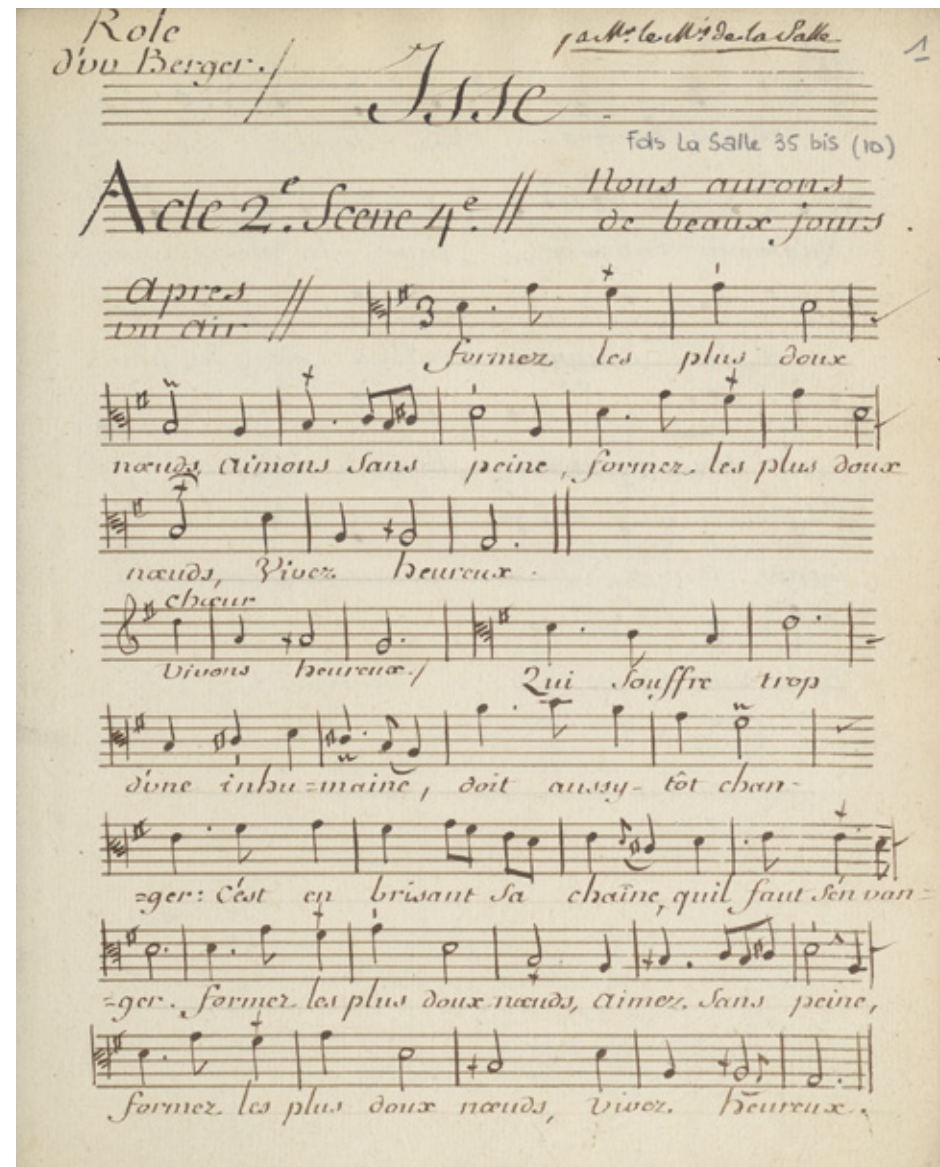 Role
d'un Berger./
p a Mr. le Mis de la Salle
1
Isse
Fds La Salle 35 bis (10)
Acte 2e. Scene 4e. //
Nous aurons
de beaux jours.
apres
un air //
3
formez les plus doux
nœuds, aimons Sans peine, formez les plus doux
nœuds, Vivez heureux.
chœur
Vivons heureux./ Qui Souffre trop
d'une inhu=maine, doit aussy-tôt chan-
=ger: C'est en brisant Sa chaîne, quil faut S'en van=
=ger. formez les plus doux nœuds, aimez Sans peine,
formez les plus doux nœuds, vivez heureux.